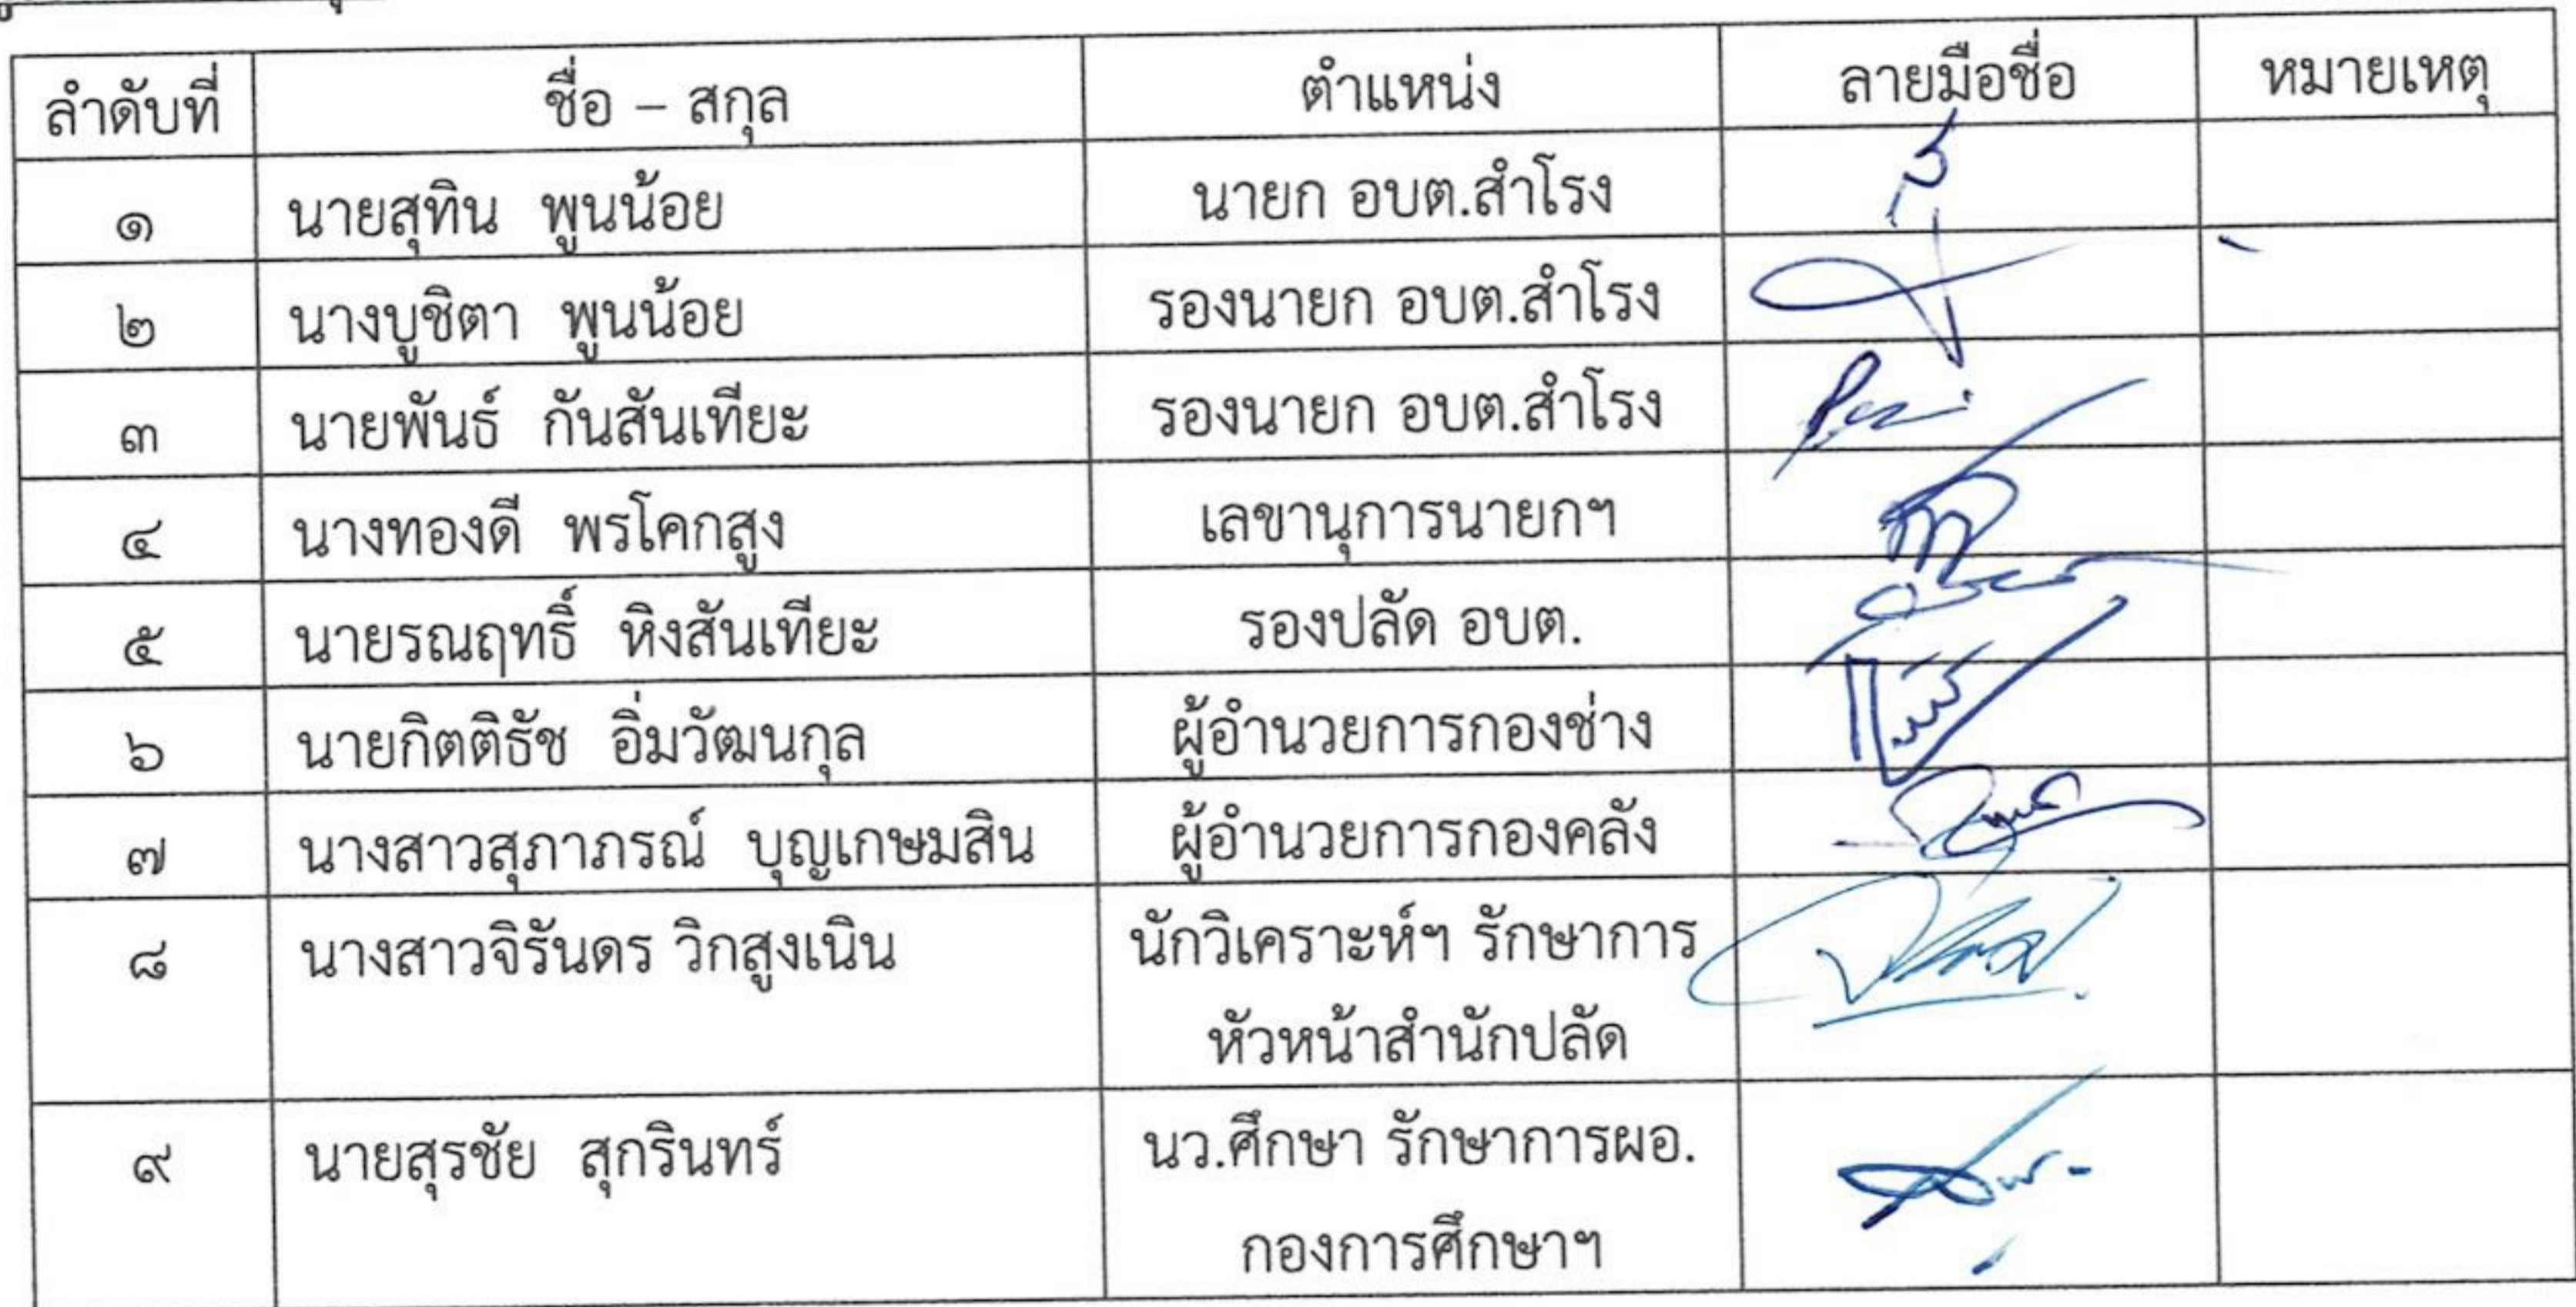 ลำดับที่ ชื่อ – สกุล ตำแหน่ง ลายมือชื่อ หมายเหตุ
๑ นายสุทิน พูนน้อย นายก อบต.สำโรง
๒ นางบูชิตา พูนน้อย รองนายก อบต.สำโรง
๓ นายพันธ์ กันสันเทียะ รองนายก อบต.สำโรง
๔ นางทองดี พรโคกสูง เลขานุการนายกฯ
๕ นายรณฤทธิ์ หิงสันเทียะ รองปลัด อบต.
๖ นายกิตติธัช อิ่มวัฒนกุล ผู้อำนวยการกองช่าง
๗ นางสาวสุภาภรณ์ บุญเกษมสิน ผู้อำนวยการกองคลัง
๘ นางสาวจิรันดร วิกสูงเนิน นักวิเคราะห์ฯ รักษาการ
หัวหน้าสำนักปลัด
๙ นายสุรชัย สุกรินทร์ นว.ศึกษา รักษาการผอ.
กองการศึกษาฯ